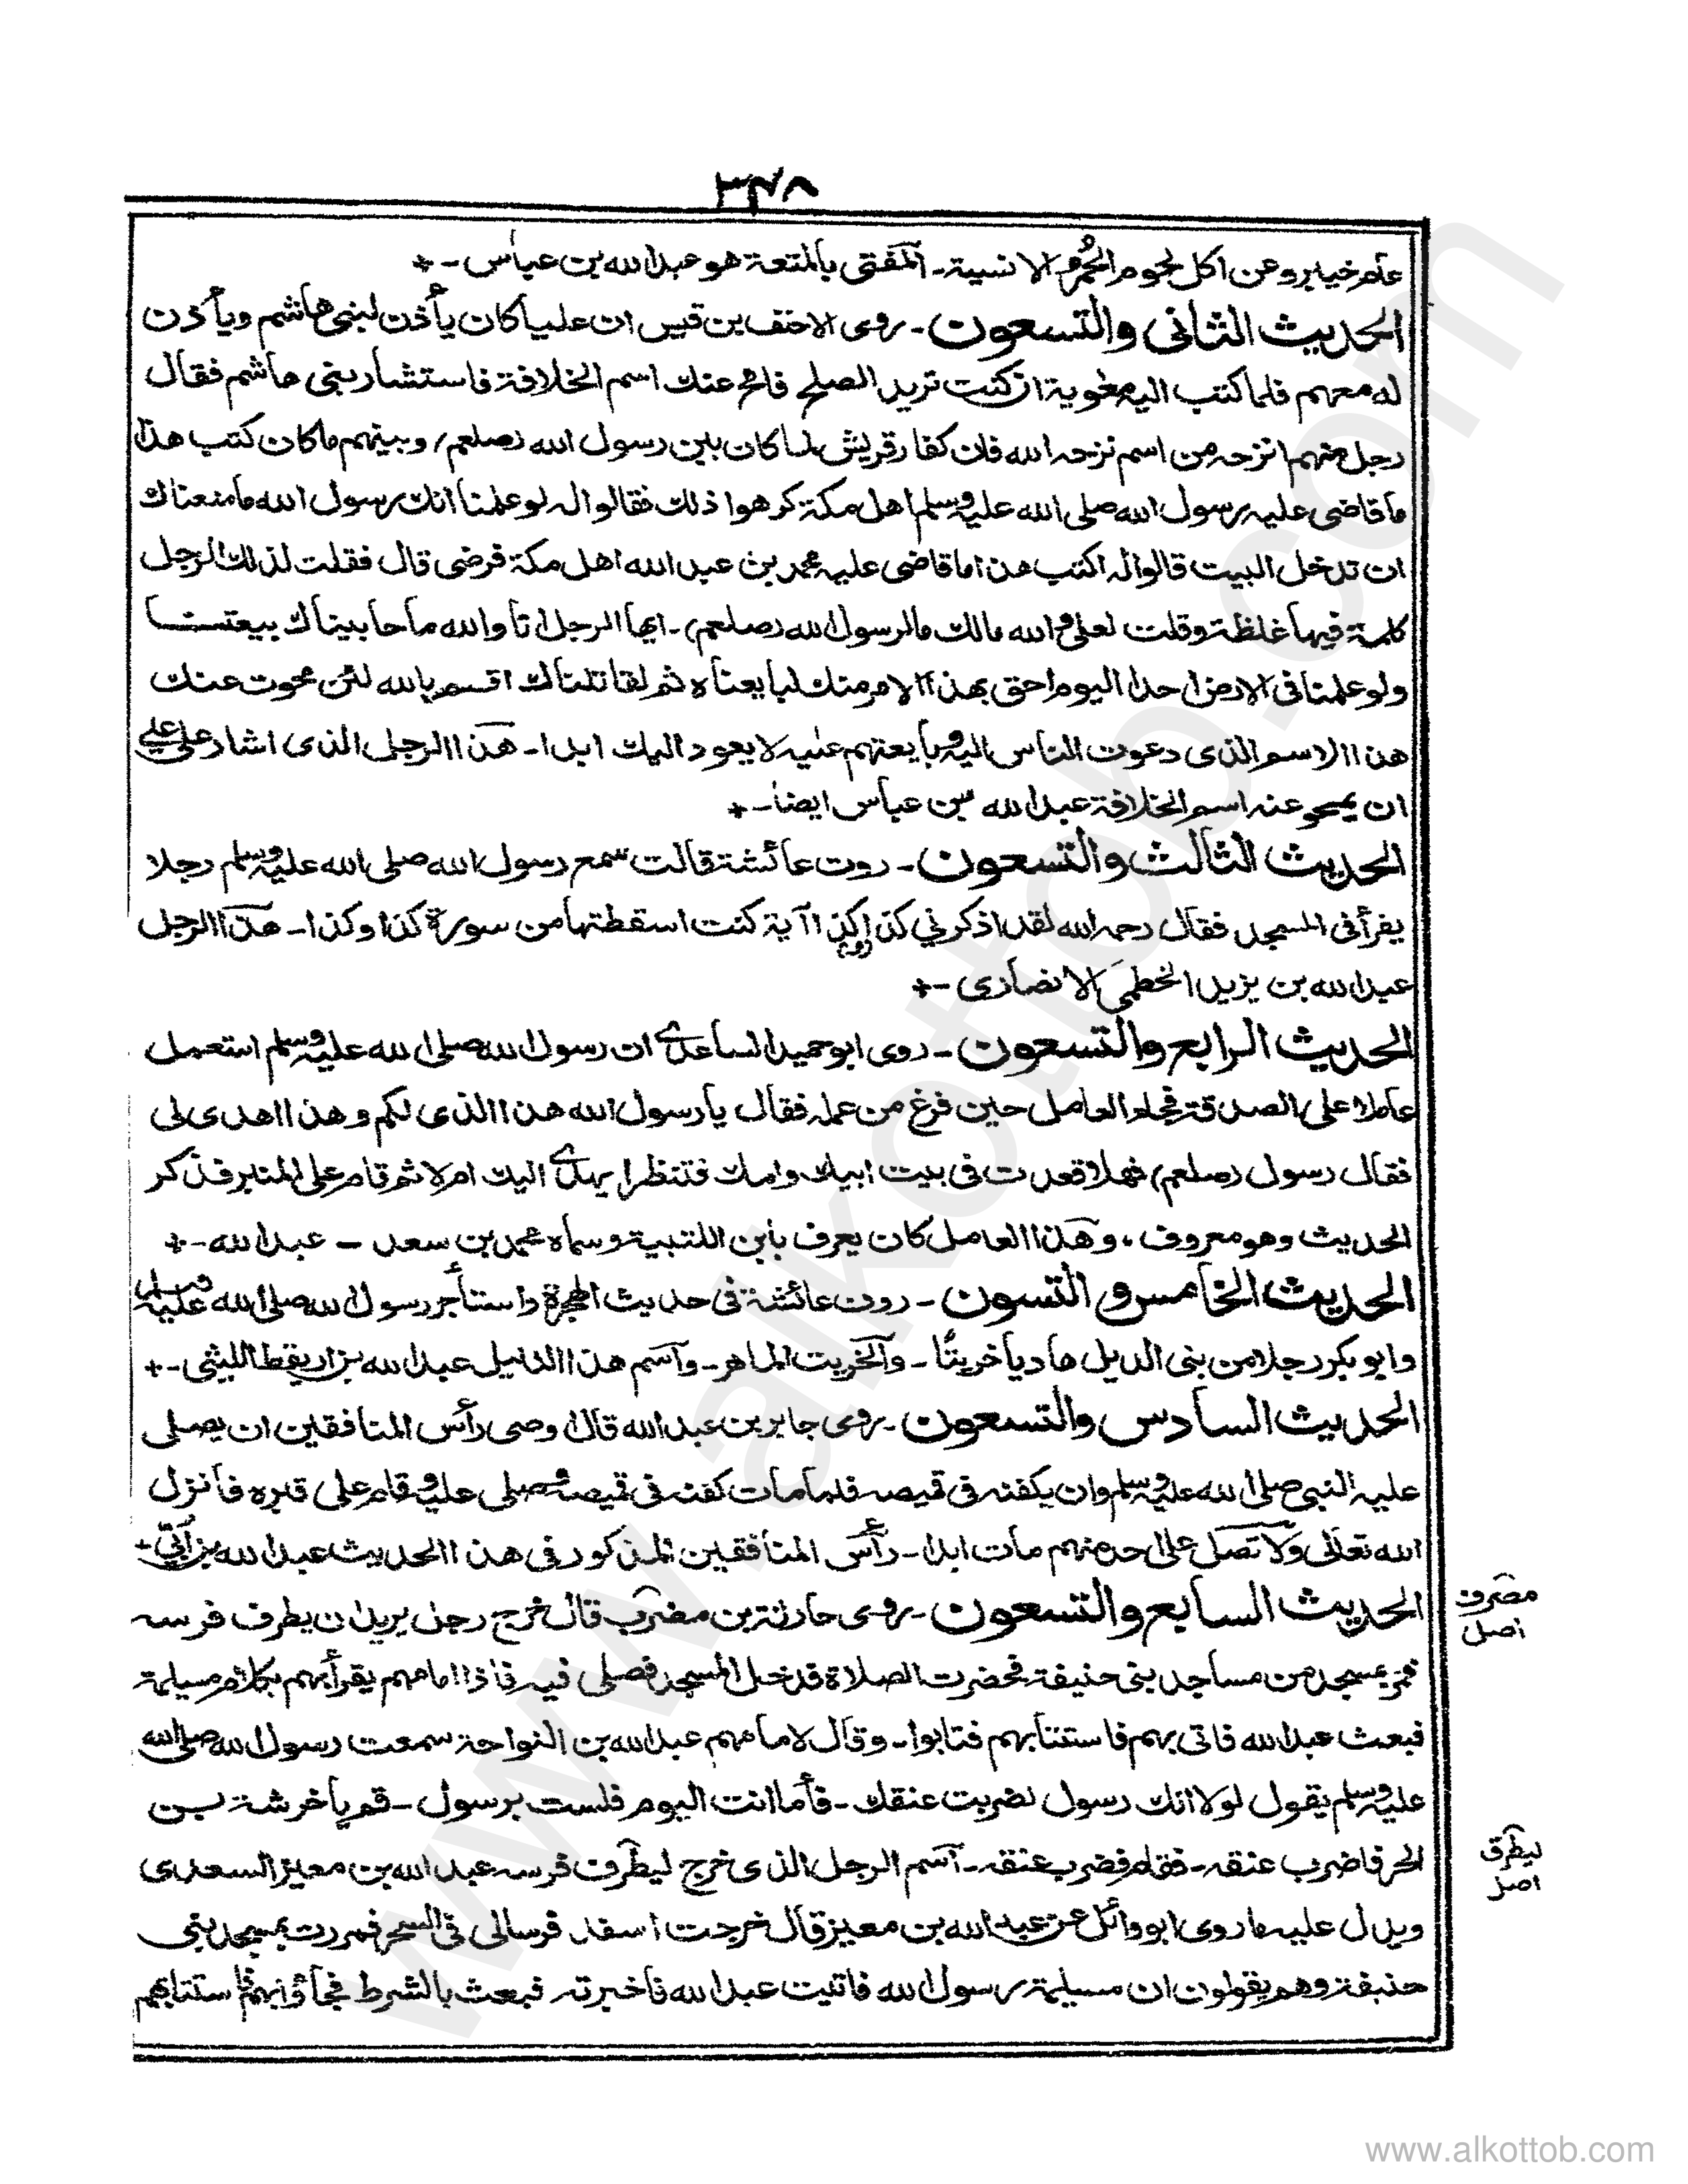 ٣٤٨
عام خيبر وعن اكل لحوم الحُمُر الانسية ـ المفتى بالمتعة هو عبد الله بن عباس ـ+
الحديث الثانى والتسعون ـ روى الاحنف بن قيس ان عليا كان يأذن لبنى هاشم ويأذن
له معهم فلما كتب اليه معوية ان كنت تريد الصلح فامح عنك اسم الخلافة فاستشار بنى هاشم فقال
رجل منهم انزحه من اسم نزحه الله فان كفار قريش لما كان بين رسول الله (صلعم) وبينهم ما كان كتب هذا
ما قاضى عليه رسول الله صلى الله عليه وسلم اهل مكة كرهوا ذلك فقالوا له لو علمنا انك رسول الله ما منعناك
ان تدخل البيت قالوا له اكتب هذا ما قاضى عليه محمد بن عبد الله اهل مكة فرضى قال فقلت لذلك الرجل
كلمة فيها غلظة وقلت لعلى والله مالك مالرسول الله (صلعم) ـ ايها الرجل انا والله ما حابيناك ببيعتنا
ولو علمنا فى الارض احدا اليوم احق بهذا الامر منك لبايعناه ثم لقاتلناك اقسم بالله لئن محوت عنك
هذا الاسم الذى دعوت الناس اليه وبايعتهم عليه لا يعود اليك ابدا ـ هذا الرجل الذى اشار على علي
ان يمحو عنه اسم الخلافة عبد الله بن عباس ايضا ـ+
الحديث الثالث والتسعون ـ روت عائشة قالت سمع رسول الله صلى الله عليه وسلم رجلا
يقرأ فى المسجد فقال رحمه الله لقد اذكرني كذا كذا آية كنت اسقطتها من سورة كذا وكذا ـ هذا الرجل
عبد الله بن يزيد الخطمى الانصارى ـ+
الحديث الرابع والتسعون ـ روى ابو حميد الساعدي ان رسول الله صلى الله عليه وسلم استعمل
عاملا على الصدقة فجاء العامل حين فرغ من عمله فقال يا رسول الله هذا الذى لكم وهذا اهدى لى
فقال رسول (صلعم) فهلا قعدت فى بيت ابيك وامك فتنظر ا يهدي اليك ام لا ثم قام على المنبر فذكر
الحديث وهو معروف ، وهذا العامل كان يعرف بابن اللتبية وسماه محمد بن سعد ـ عبد الله ـ+
الحديث الخامس و التسون ـ روت عائشة فى حديث الهجرة واستأجر رسول الله صلى الله عليه وسلم
وابو بكر رجلا من بنى الديل هاديا خريتًا ـ والخريت الماهر ـ واسم هذا الدليل عبد الله بن اريقط الليثى ـ+
الحديث السادس والتسعون ـ روى جابر بن عبد الله قال وصى رأس المنافقين ان يصلى
عليه النبى صلى الله عليه وسلم وان يكفنه فى قميصه فلما مات كفنه فى قميصه وصلى عليه وقام على قبره فأنزل
الله تعالى ولا تصل على احد منهم مات ابدا ـ رأس المنافقين المذكور فى هذا الحديث عبد الله بن أبي +
الحديث السابع والتسعون ـ روى حارثة بن مضرب قال خرج رجل يريد ان يطرف فرسه
مضرف
اصل
فمر بمسجد من مساجد بنى حنيفة فحضرت الصلاة فدخل المسجد فصلى فيه فاذا امامهم يقرأ بهم بكلام مسيلمة
فبعث عبد الله فاتى بهم فاستتابهم فتابوا ـ وقال لامامهم عبد الله بن النواحة سمعت رسول الله صلى الله
عليه وسلم يقول لولا انك رسول لضربت عنقك ـ فأما انت اليوم فلست برسول ـ قم يا خرشة بن
الحر فاضرب عنقه ـ فقام فضرب عنقه ـ اسم الرجل الذى خرج ليطرف فرسه عبد الله بن معيز السعدى
ليطرق
اصل
ويدل عليه ما روى ابو وائل عن عبد الله بن معيز قال خرجت اسفد فرسا لى فى السحر فمررت بمسجد بنى
حنيفة وهم يقولون ان مسيلمة رسول الله فاتيت عبد الله فأخبرته فبعث بالشرط فجاؤا بهم فاستتابهم
www.alkottob.com
www.alkottob.com